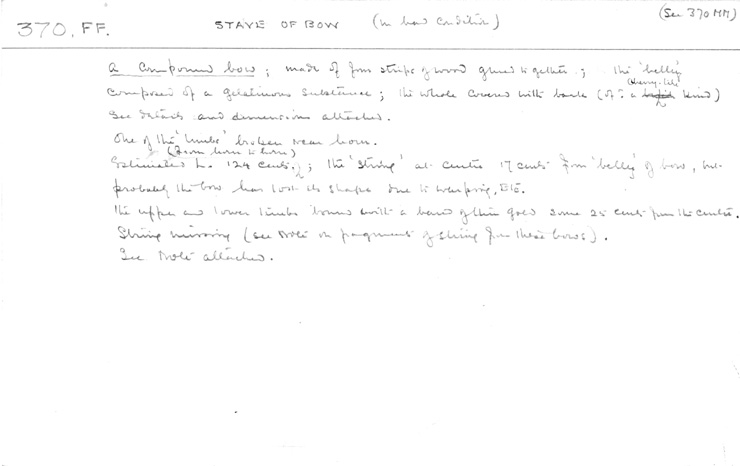 (See 370 MM)
370, FF. STAVE OF BOW (in bad condition)
A compound bow; made of four strips of wood glued together; the 'belly'
cherry-like
composed of a gelatinous substance; the whole covered with bark (of ? a kind)
See details and dimensions attached.
One of the 'limbs' broken near horn.
(from horn to horn)
Estimated L. 124 cents.; the 'string' at centre 17 cents from 'belly' of bow, but
probably the bow has lost its shape due to warping, Etc.
The upper and lower limbs bound with a band of thin gold some 25 cents from the centre.
String missing (see Note on fragments of string from these bows).
See Note attached.